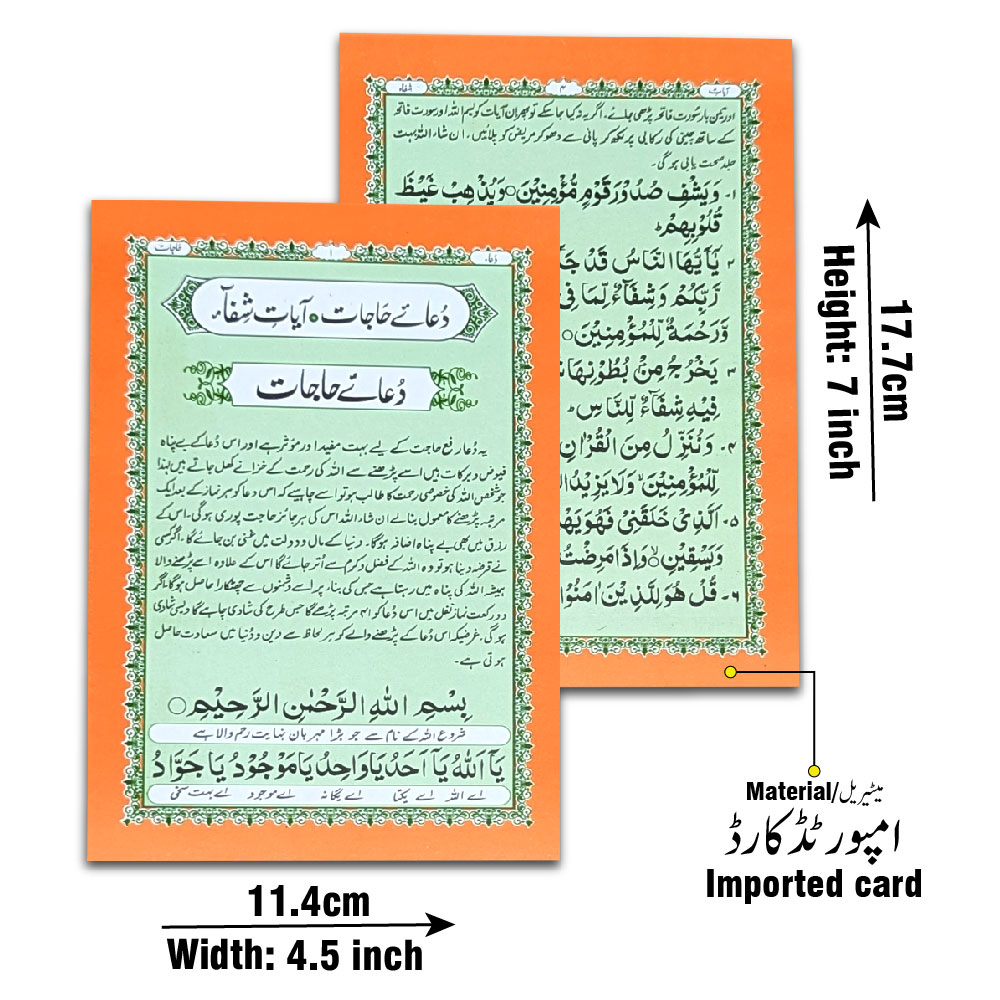 آیات
۴
شفاء
اور تین بار سورت فاتحہ پڑھی جائے۔ اگر یہ نہ کیا جا سکے تو پھر ان آیات کو بسم اللہ اور سورت فاتحہ
کے ساتھ چینی کی رکابی پر لکھ کر پانی سے دھو کر مریض کو پلائیں۔ ان شاء اللہ بہت
جلد صحت یابی ہو گی۔
۱۔ وَيَشْفِ صُدُوْرَ قَوْمٍ مُّؤْمِنِيْنَ○ وَيُذْهِبْ غَيْظَ
قُلُوْبِهِمْ ط
۲ يٰٓاَيُّهَا النَّاسُ قَدْ جَا
رَّبِّكُمْ وَشِفَآءٌ لِّمَا فِى
وَّرَحْمَةٌ لِّلْمُؤْمِنِيْنَ○
۳ يَخْرُجُ مِنْۢ بُطُوْنِهَا شَ
فِيْهِ شِفَآءٌ لِّلنَّاسِ ط
۴۔ وَنُنَزِّلُ مِنَ الْقُرْاٰنِ
لِّلْمُؤْمِنِيْنَ وَلَا يَزِيْدُ ال
۵۔ الَّذِىْ خَلَقَنِىْ فَهُوَ يَهْ
وَيَسْقِيْنِ○ وَاِذَا مَرِضْتُ
۶۔ قُلْ هُوَ لِلَّذِيْنَ اٰمَنُوْا
دعاء
۱
حاجات
دُعائے حَاجات ० آیات شِفَآء
دُعائے حَاجات
یہ دُعا رفع حاجت کے لیے بہت مفید اور موثر ہے اور اس دُعا کے بے پناہ
فیوض و برکات ہیں اسے پڑھنے سے اللہ کی رحمت کے خزانے کھل جاتے ہیں لہٰذا
جو شخص اللہ کی خصوصی رحمت کا طالب ہو تو اسے چاہیے کہ اس دعا کو ہر نماز کے بعد ایک
مرتبہ پڑھنے کا معمول بنا لے ان شاء اللہ اس کی ہر جائز حاجت پوری ہوگی۔ اس کے
رزق میں بھی بے پناہ اضافہ ہوگا۔ دنیا کے مال و دولت میں غنی بن جائے گا۔ اگر کسی
نے قرضہ دینا ہو تو وہ اللہ کے فضل و کرم سے اُتر جائے گا اس کے علاوہ اسے پڑھنے والا
ہمیشہ اللہ کی پناہ میں رہتا ہے جس کی بناء پر اسے دُشمنوں سے چھٹکارا حاصل ہوگا اگر
دو رکعت نماز نفل میں اس دُعا کو ۴۱ مرتبہ پڑھے گا جس طرح کی شادی چاہے گا ویسی شادی
ہوگی۔ غرضیکہ اس دُعا کے پڑھنے والے کو ہر لحاظ سے دین و دُنیا میں سعادت حاصل
ہوتی ہے۔
بِسْمِ اللّٰهِ الرَّحْمٰنِ الرَّحِيْمِ○
شروع اللہ کے نام سے جو بڑا مہربان نہایت رحم والا ہے
يَآ اَللّٰهُ يَآ اَحَدُ يَا وَاحِدُ يَا مَوْجُوْدُ يَا جَوَّادُ
اے اللہ اے یکتا اے یگانہ اے موجود اے بہت سخی
17.7cm
Height: 7 inch
Material/میٹیریل
امپورٹڈ کارڈ
Imported card
11.4cm
Width: 4.5 inch